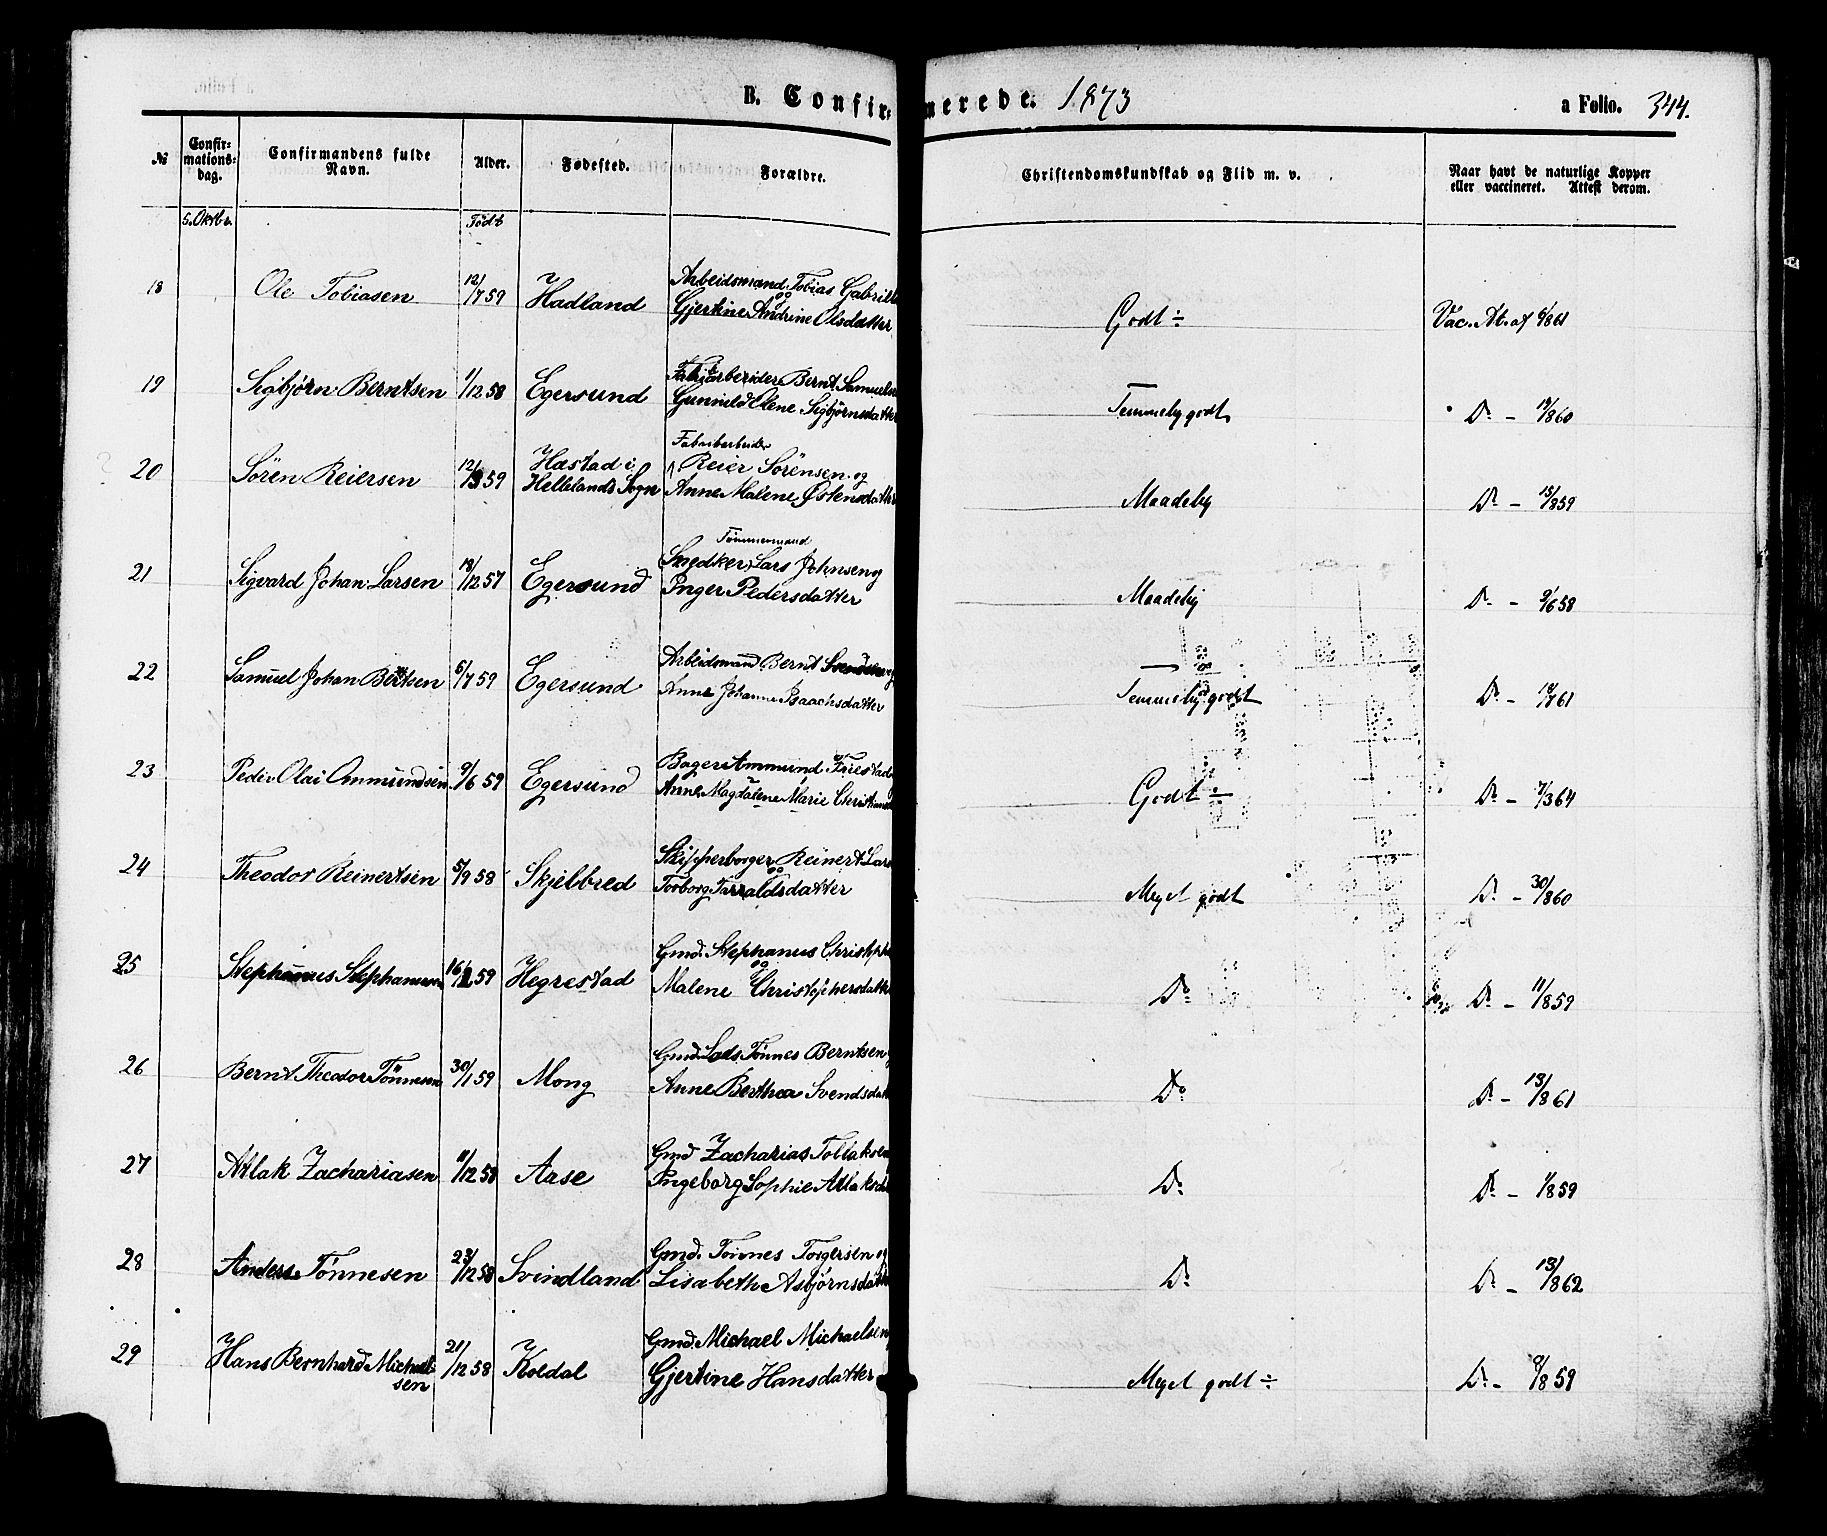 B. Confirmerede. 1873
a Folio. 344.
№ Confirmationsdag. Confirmandens fulde Navn. Alder. Fødested. Forældre. Christendomskundskab og Flid m. v. Naar havt de naturlige Kopper eller vaccineret. Attest derom.
5. Oktbr. Födt
18 Ole Tobiasen 12/7 59 Hadland Arbeidsmand Tobias Gabriels og Gjertine Andrine Olsdatter Godt ÷ Vac. At. af 6/8 61
19 Sigbjørn Berntsen 1/12 58 Egersund Bernt Samuels Gunnild Olene Sigbjørnsdatter Temmelig godt D° – 19/8 60
20 Sören Reiersen 12/3 59 Hæstad i Hellelands Sogn Fabrikarbeider Reier Sörensen og Anne Malene Østensdatter Maadelig D° – 15/8 59
21 Sigvard Johan Larsen 18/12 57 Egersund Tømmermand Snedker Lars Johnsen og Inger Pedersdatter Maadelig D° – 9/6 58
22 Samuel Johan Berntsen 6/7 59 Egersund Arbeidsmand Bernt Svendsen og Anne Johanne Isaachsdatter Temmelig godt D° – 18/7 61
23 Peder Olai Ommundsen 9/6 59 Egersund Bager Ammund Friestad Anne Magdalene Marie Godt ÷ D° – 7/3 64
24 Theodor Reinertsen 5/9 58 Skjelbred Skipperborger Reinert Lars og Torborg Tarraldsdatter Meget godt D° – 30/8 60
25 Stephanus Stephanusen 16/2 59 Hegrestad Gmd. Stephanus Christoph og Malene Christophersdatter D° D° – 11/8 59
26 Bernt Theodor Tönnesen 30/1 59 Mong Gmd. Lads Tönnes Berntsen Anne Berthea Svendsdatt D° D° – 13/8 61
27 Atlak Zachariasen 11/12 58 Aase Gmd Zacharias Tollaksen Ingeborg Sophie Atlaksd D° D° – 1/8 59
28 Anders Tönnesen 23/12 58 Svindland Gmd. Tönnes Torgersen og Lisabeth Asbjørnsdatt D° D° – 13/8 62
29 Hans Bernhard Michaelsen 21/12 58 Koldal Gmd. Michael Michaelsen Gjertine Hansdatter Meget godt ÷ D° – 9/8 59